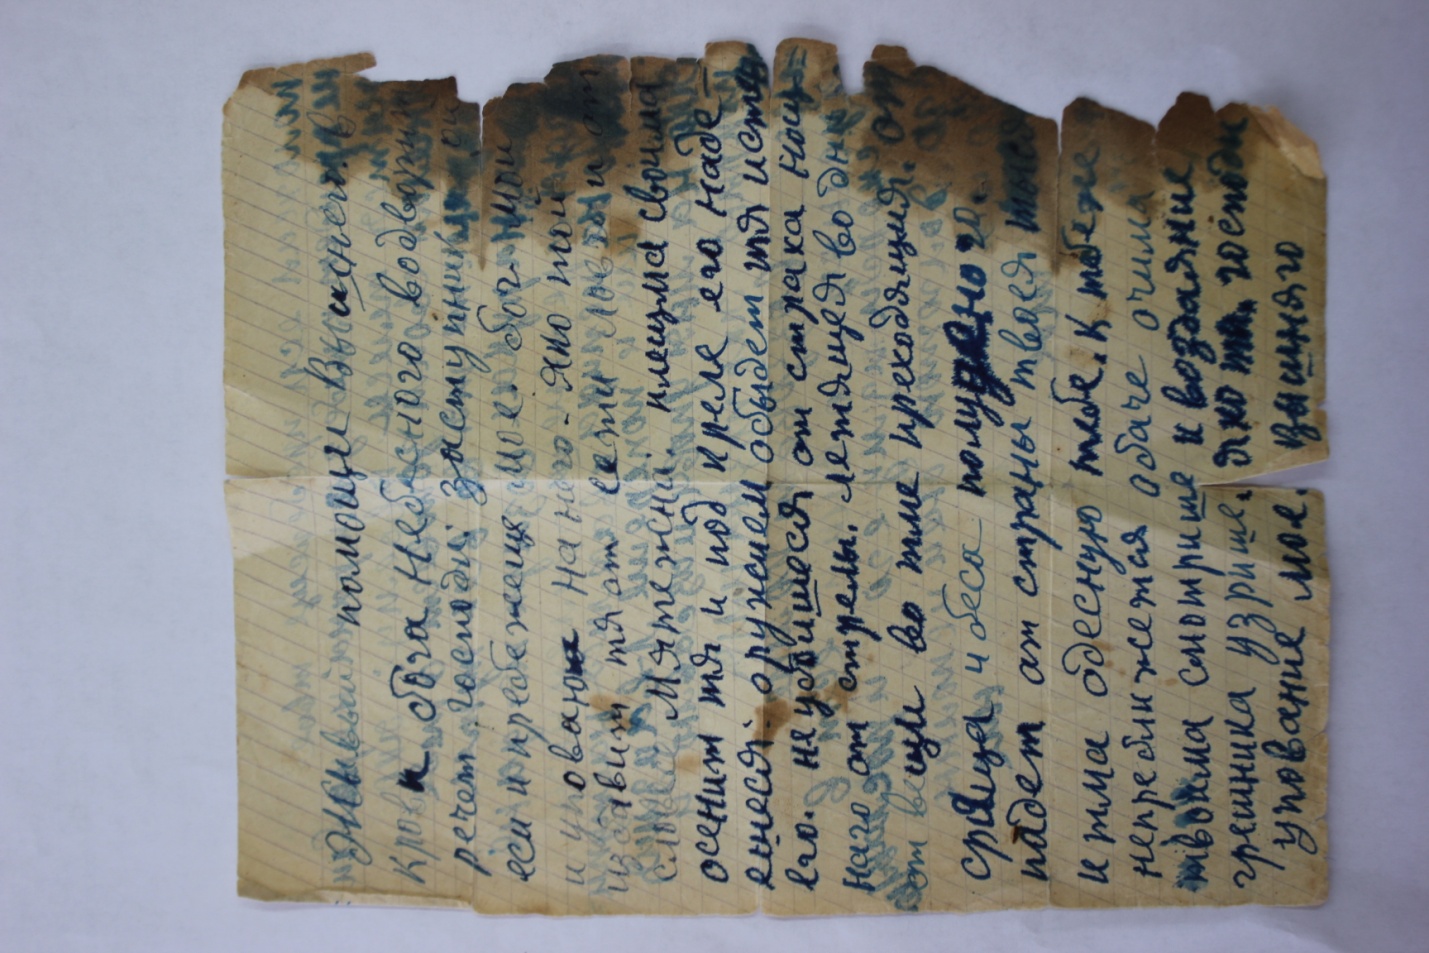 Живый помощи Вышнего. в
крове бога Небесного водворит
речет господи. Заступник
еси и пребежеще мое. бог мой
и уповаюю на него. яко той
избавит тя от сети ловчи и от
словеси Мятежна. плещма своима
осенит тя и под криле его наде
ешеся. оружием обыдет тя исти
его. неубоишеся от страха нощ
наго от стрелы. летящея во дни
от вещи во тме преходящия. от
сряща и беса полуденого.
падет от страны твоея тысе
и тма одесную тебе. К тобе не
неприближетая обаче очима
твоима смотрише и воздаяние
грешника узрише. яко ты. господи
упование мое. вышняго